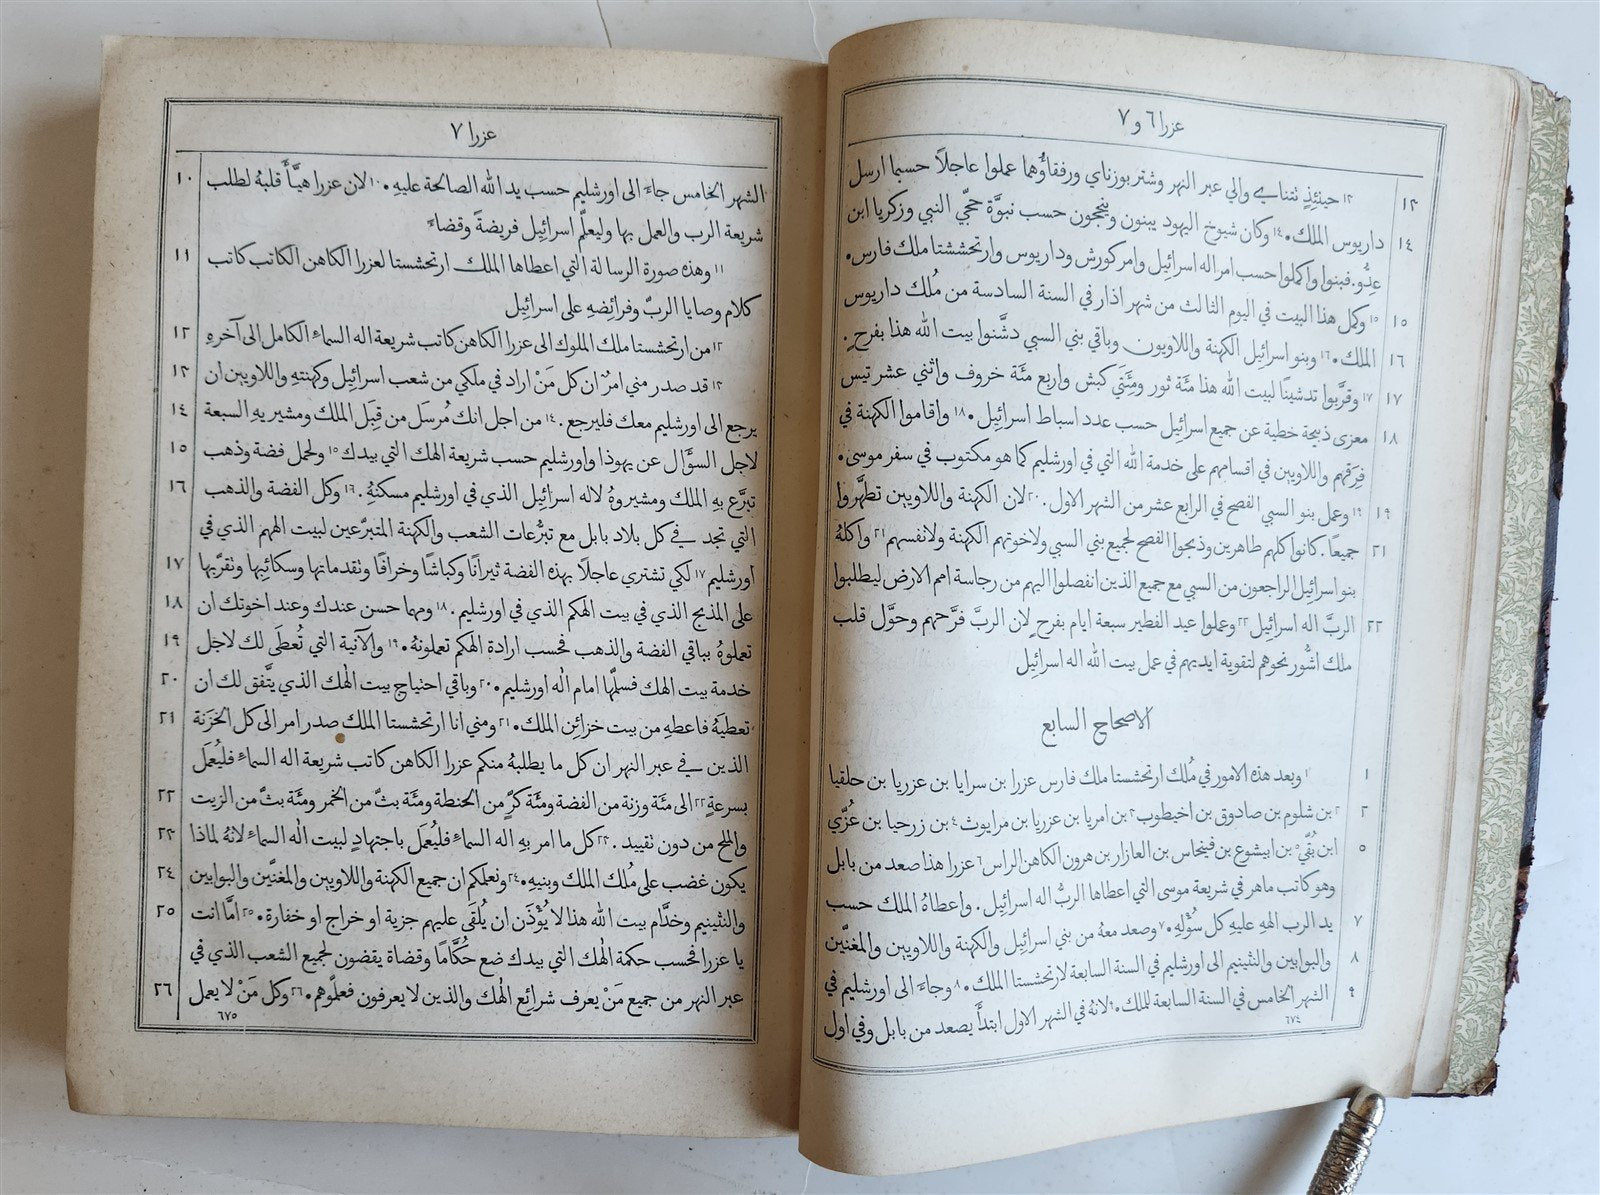 عزرا ٦ و ٧
١٣ ١٣ حينئذٍ تتناي والي عبر النهر وشتر بوزناي ورفقاؤُهما عملوا عاجلاً حسبما ارسل
١٤ داريوس الملك. ١٤ وكان شيوخ اليهود يبنون وينجحون حسب نبوَّة حجّي النبي وزكريا ابن
عِدُّو. فبنوا واكملوا حسب امر اله اسرائيل وامر كورش وداريوس وارتحششتا ملك فارس.
١٥ ١٥ وكمل هذا البيت في اليوم الثالث من شهر اذار في السنة السادسة من مُلك داريوس
١٦ الملك. ١٦ وبنو اسرائيل الكهنة واللاويون وباقي بني السبي دشَّنوا بيت الله هذا بفرحٍ.
١٧ ١٧ وقرَّبوا تدشينًا لبيت الله هذا مئَة ثور ومِئَتَي كبش واربع مئَة خروف واثني عشر تيس
١٨ معزى ذبيحة خطية عن جميع اسرائيل حسب عدد اسباط اسرائيل. ١٨ واقاموا الكهنة في
فِرَقهم واللاويين في اقسامهم على خدمة الله التي في اورشليم كما هو مكتوب في سفر موسى.
١٩ ١٩ وعمل بنو السبي الفصح في الرابع عشر من الشهر الاول. ٢٠ لان الكهنة واللاويين تطهَّروا
٢١ جميعًا. كانوا كلهم طاهرين وذبحوا الفصح لجميع بني السبي ولاخوتهم الكهنة ولانفسهم ٢١ واكلهُ
بنو اسرائيل الراجعون من السبي مع جميع الذين انفصلوا اليهم من رجاسة امم الارض ليطلبوا
٢٢ الربَّ اله اسرائيل ٢٢ وعملوا عيد الفطير سبعة ايام بفرحٍ لان الربَّ فرَّحهم وحوَّل قلب
ملك اشُّور نحوهم لتقوية ايديهم في عمل بيت الله اله اسرائيل
الاصحاح السابع
١ ١ وبعد هذه الامور في مُلك ارتحششتا ملك فارس عزرا بن سرايا بن عزريا بن حلقيا
٢ ٢ بن شلوم بن صادوق بن اخيطوب ٣ بن امريا بن عزريا بن مرايوث ٤ بن زرحيا بن عُزّي
٥ ابن بُقّي ٥ بن ابيشوع بن فينحاس بن العازار بن هرون الكاهن الراس ٦ عزرا هذا صعد من بابل
وهو كاتب ماهر في شريعة موسى التي اعطاها الربُّ اله اسرائيل. واعطاهُ الملك حسب
٧ يد الرب الهه عليهِ كل سُؤْلهِ. ٧ وصعد معه من بني اسرائيل والكهنة واللاويين والمغنّين
٨ والبوابين والنثينيم الى اورشليم في السنة السابعة لارتحششتا الملك. ٨ وجاءَ الى اورشليم في
٩ الشهر الخامس في السنة السابعة للملك. ٩ لانهُ في الشهر الاول ابتدأَ يصعد من بابل وفي اول
٦٧٤
عزرا ٧
الشهر الخامس جاءَ الى اورشليم حسب يد الله الصالحة عليهِ. ١٠ لان عزرا هيَّأَ قلبهُ لطلب ١٠
شريعة الرب والعمل بها وليعلّم اسرائيل فريضةً وقضاءً
١١ وهذه صورة الرسالة التي اعطاها الملك ارتحششتا لعزرا الكاهن الكاتب كاتب ١١
كلام وصايا الربّ وفرائضهِ على اسرائيل
١٢ من ارتحششتا ملك الملوك الى عزرا الكاهن كاتب شريعة اله السماءِ الكامل الى آخرهِ ١٢
١٣ قد صدر مني امرٌ ان كل مَنْ اراد في ملكي من شعب اسرائيل وكهنتهِ واللاويين ان ١٣
يرجع الى اورشليم معك فليرجع. ١٤ من اجل انك مُرسَل من قِبَل الملك ومشيريهِ السبعة ١٤
لاجل السؤَال عن يهوذا واورشليم حسب شريعة الهك التي بيدك ١٥ ولحمل فضة وذهب ١٥
تبرَّع بهِ الملك ومشيروهُ لاله اسرائيل الذي في اورشليم مسكنهُ. ١٦ وكل الفضة والذهب ١٦
التي تجد في كل بلاد بابل مع تبرُّعات الشعب والكهنة المتبرّعين لبيت الههم الذي في
اورشليم ١٧ لكي تشتري عاجلاً بهذه الفضة ثيرانًا وكباشًا وخرافًا وتقدماتها وسكائبها وتقرّبها ١٧
على المذبح الذي في بيت الهكم الذي في اورشليم. ١٨ ومهما حسن عندك وعند اخوتك ان ١٨
تعملوهُ بباقي الفضة والذهب فحسب ارادة الهكم تعملونهُ. ١٩ والآنية التي تُعطَى لك لاجل ١٩
خدمة بيت الهك فسلّمها امام اله اورشليم. ٢٠ وباقي احتياج بيت الهك الذي يتَّفق لك ان ٢٠
تعطيَهُ فاعطهِ من بيت خزائن الملك. ٢١ ومني انا ارتحششتا الملك صدر امر الى كل الخَزَنة ٢١
الذين في عبر النهر ان كل ما يطلبهُ منكم عزرا الكاهن كاتب شريعة اله السماءِ فليُعمَل
بسرعةٍ ٢٢ الى مئَة وزنة من الفضة ومئَة كُرّ من الحنطة ومئَة بثّ من الخمر ومئَة بثّ من الزيت ٢٢
والملح من دون تقييد. ٢٣ كل ما امر بهِ اله السماءِ فليُعمَل باجتهادٍ لبيت اله السماءِ لانهُ لماذا ٢٣
يكون غضب على مُلك الملك وبنيهِ. ٢٤ ونعلمكم ان جميع الكهنة واللاويين والمغنّين والبوابين ٢٤
والنثينيم وخدَّام بيت الله هذا لا يُؤْذَن ان يُلقَى عليهم جزية او خراج او خفارة. ٢٥ امَّا انت ٢٥
يا عزرا فحسب حكمة الهك التي بيدك ضع حُكَّامًا وقضاة يقضون لجميع الشعب الذي في
عبر النهر من جميع مَنْ يعرف شرائع الهك والذين لا يعرفون فعلّموهم. ٢٦ وكل مَنْ لا يعمل ٢٦
٦٧٥